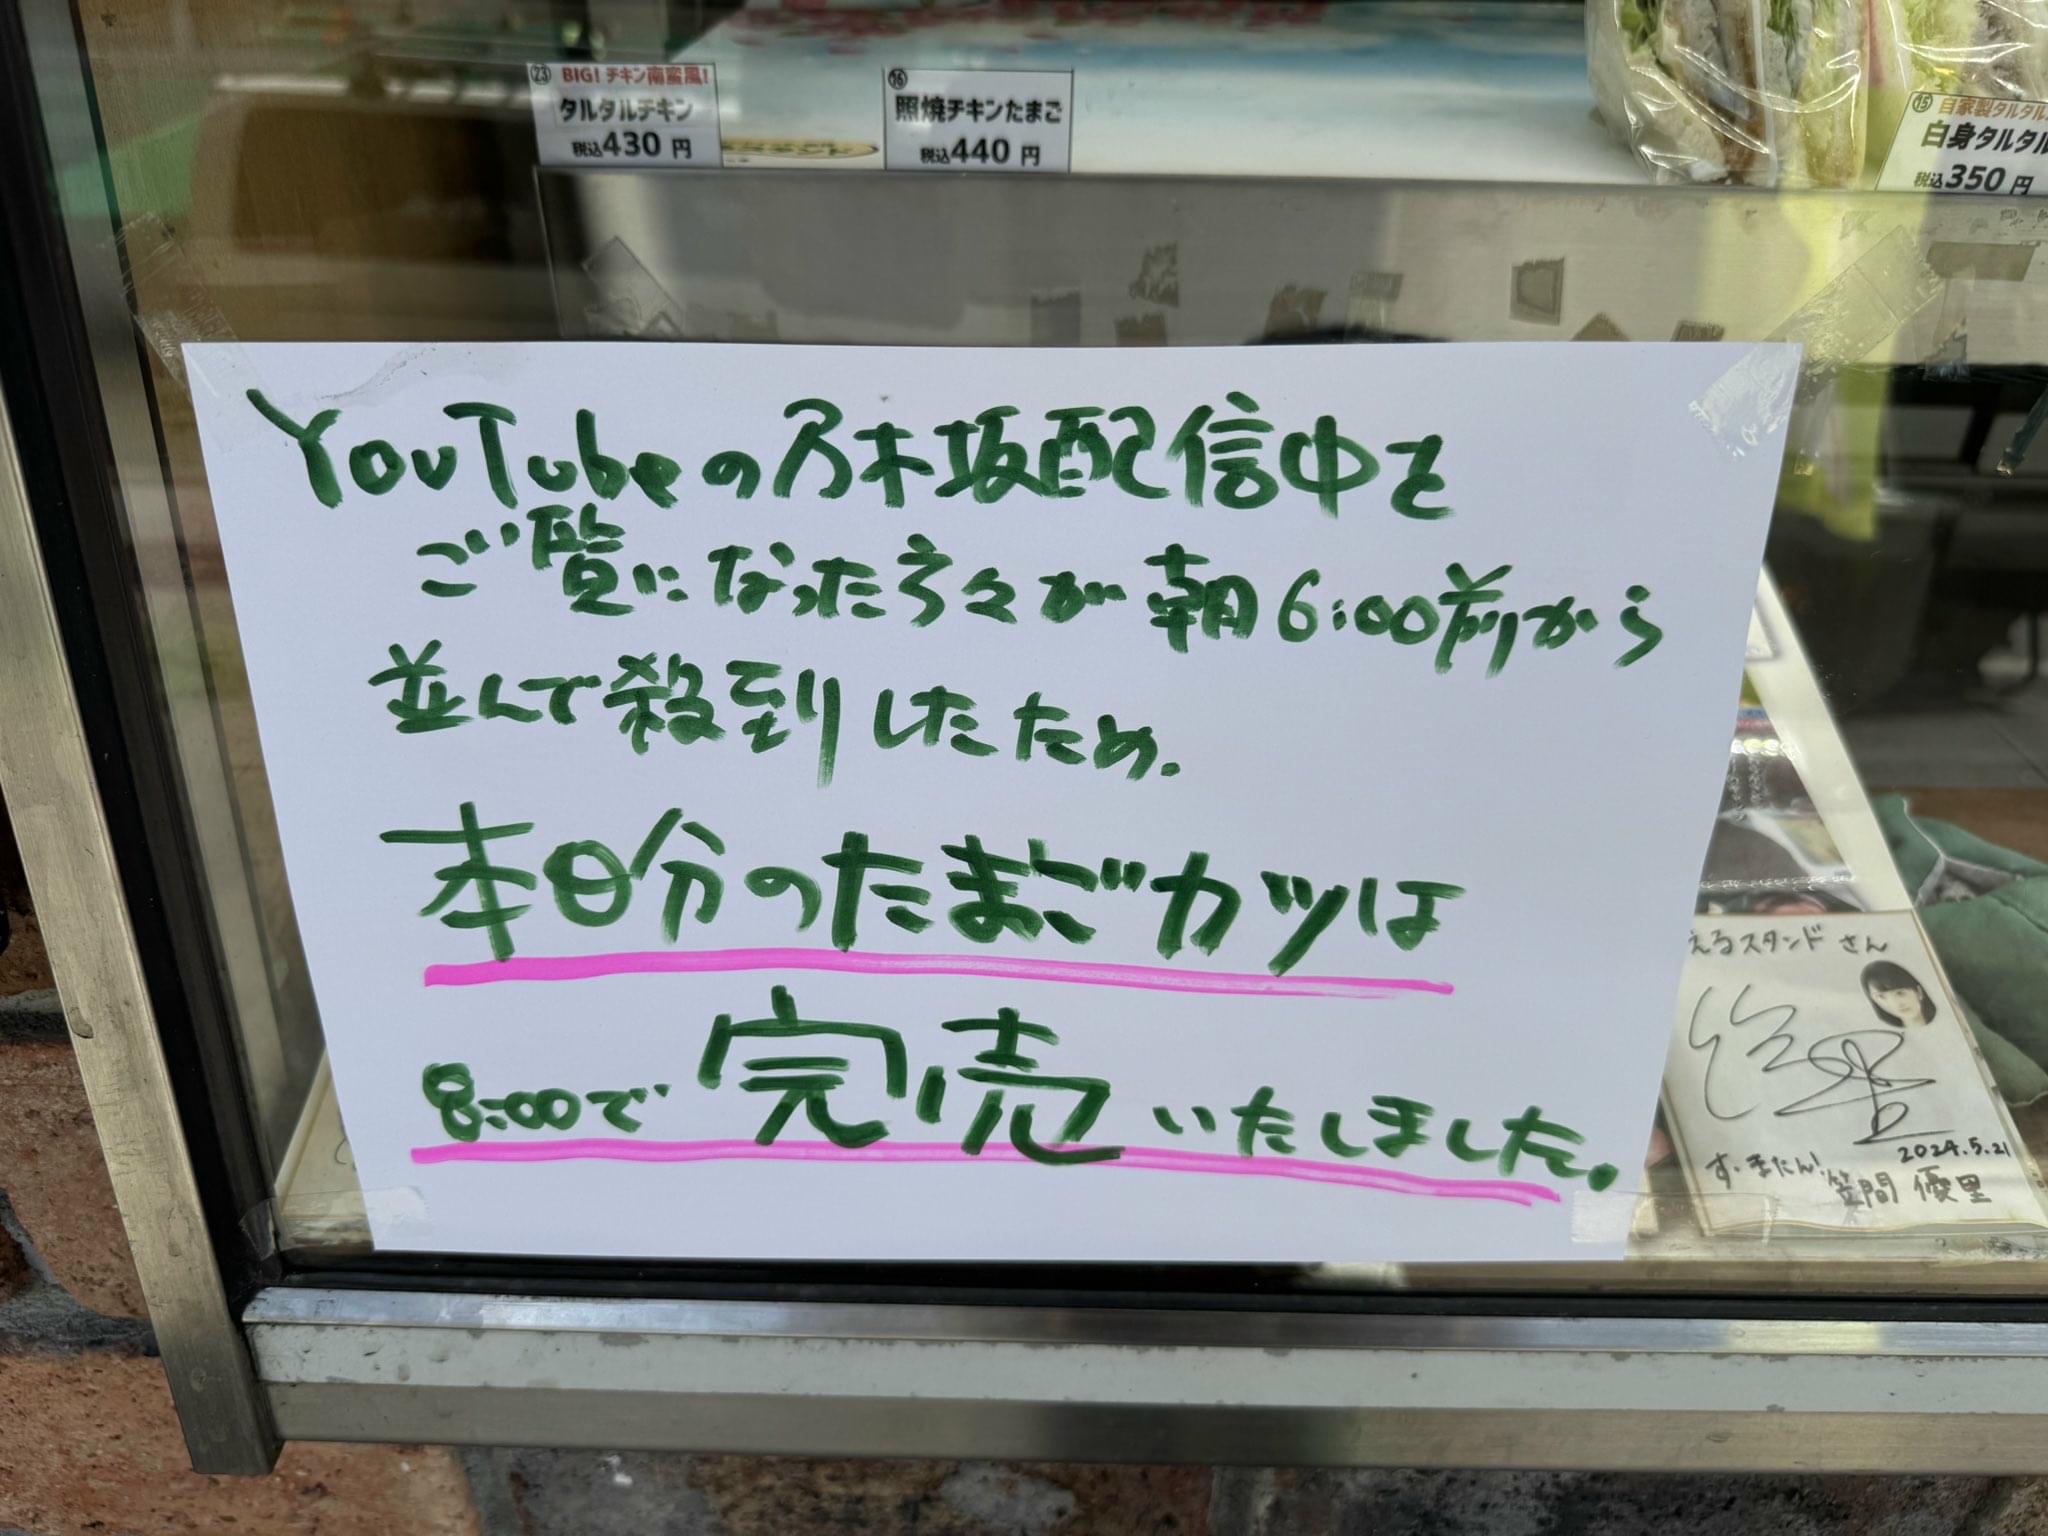 ㉓ BIG! チキン南蛮風!
タルタルチキン
税込430 円
⑯
照焼チキンたまご
税込440 円
⑮ 自家製タルタル
白身タルタル
税込350 円
YouTubeの乃木坂配信中を
ご覧になった方々が朝6:00前から
並んで殺到したため.
本日分のたまごカツは
8:00で完売いたしました.
えるスタンド さん
2024.5.21
笠間 優里